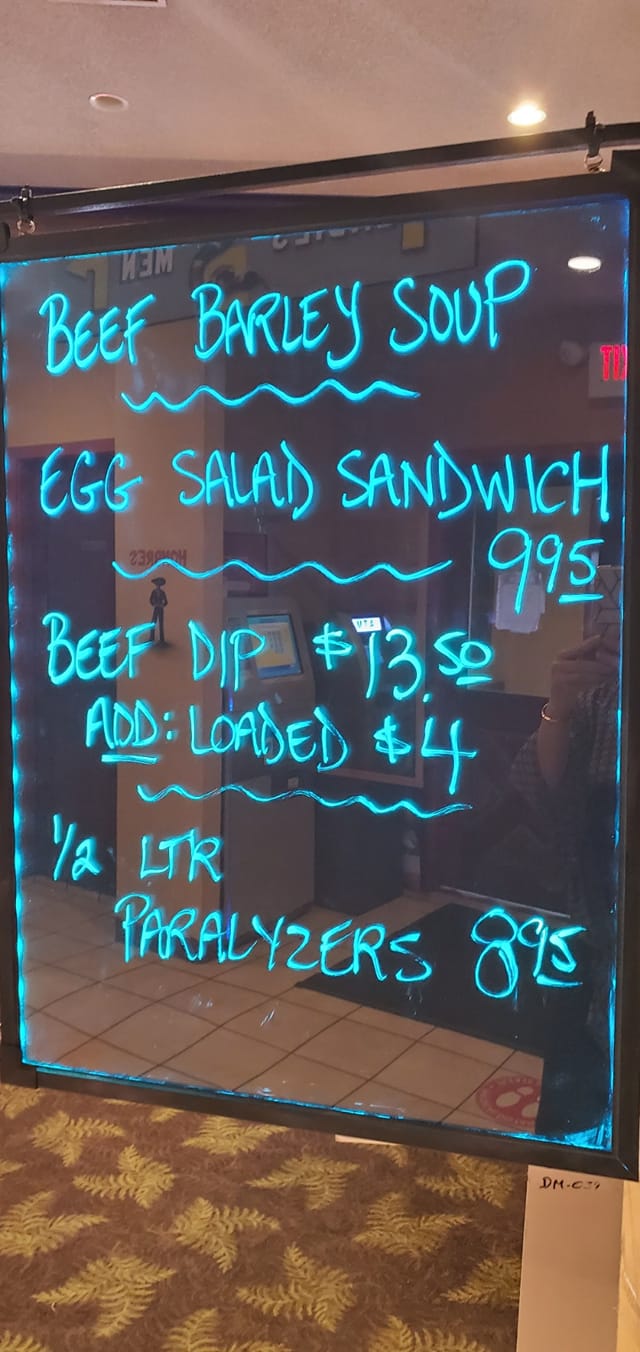 BEEF BARLEY SOUP
EGG SALAD SANDWICH
995
BEEF DIP $13.50
ADD: LOADED $4
1/2 LTR
PARALYZERS 895
MEN
HOMBRES